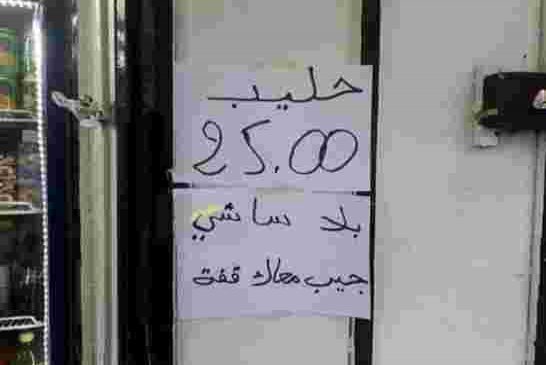 حليب
25.00
بلا ساشي
جيب معاك قفة